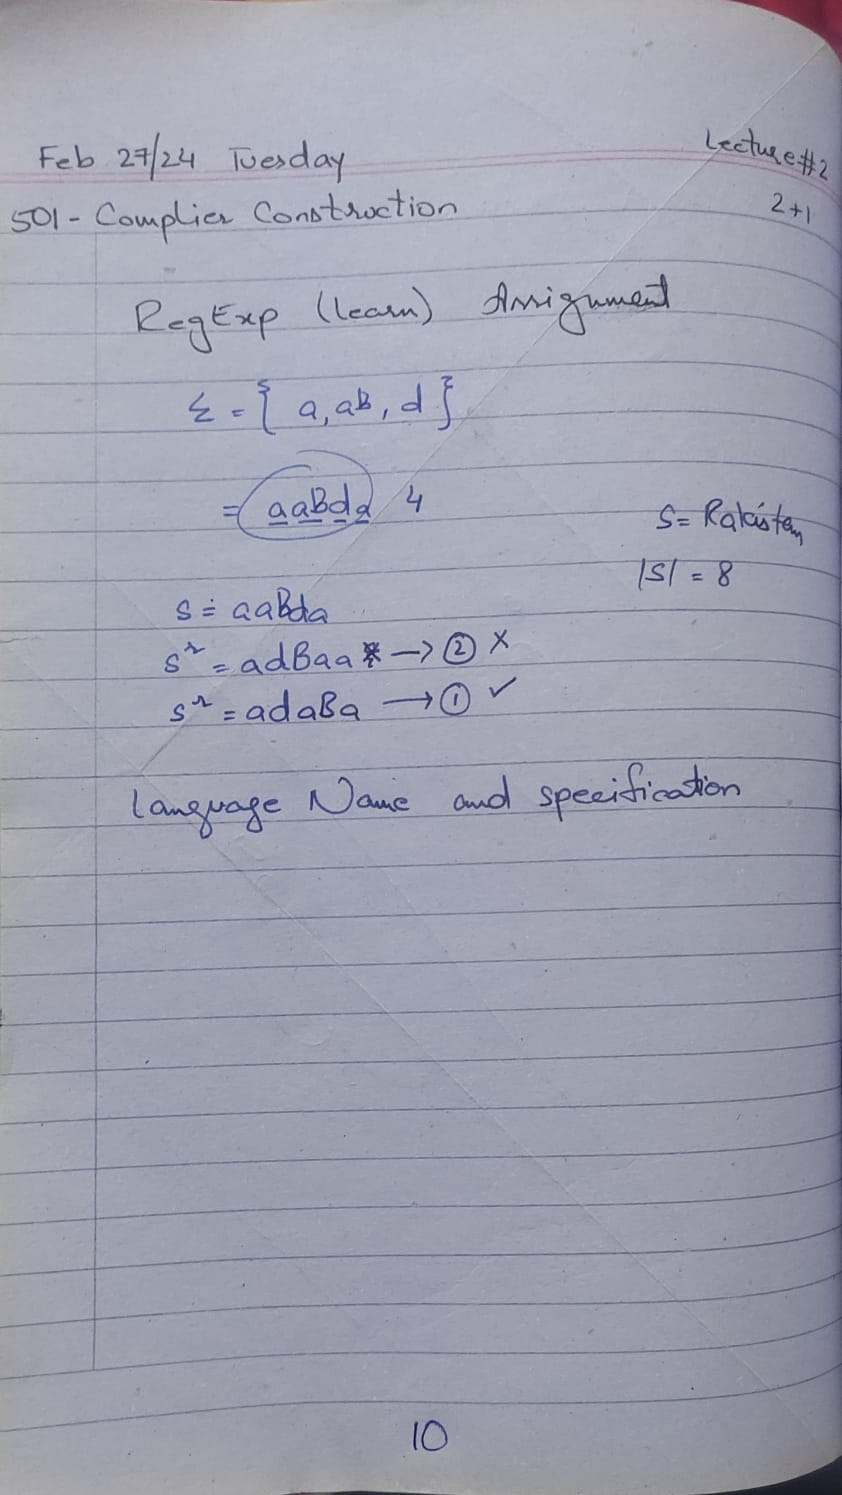 Lecture #2
Feb 27/24 Tuesday
2+1
501 - Complier Construction
RegExp (learn) Assignment
Σ = { a, aB, d }
= aaBda 4
S = Pakistan
|S| = 8
S = aaBda
Sʳ = adBaa → ② ×
Sʳ = adaBa → ① ✓
Language Name and specification
10